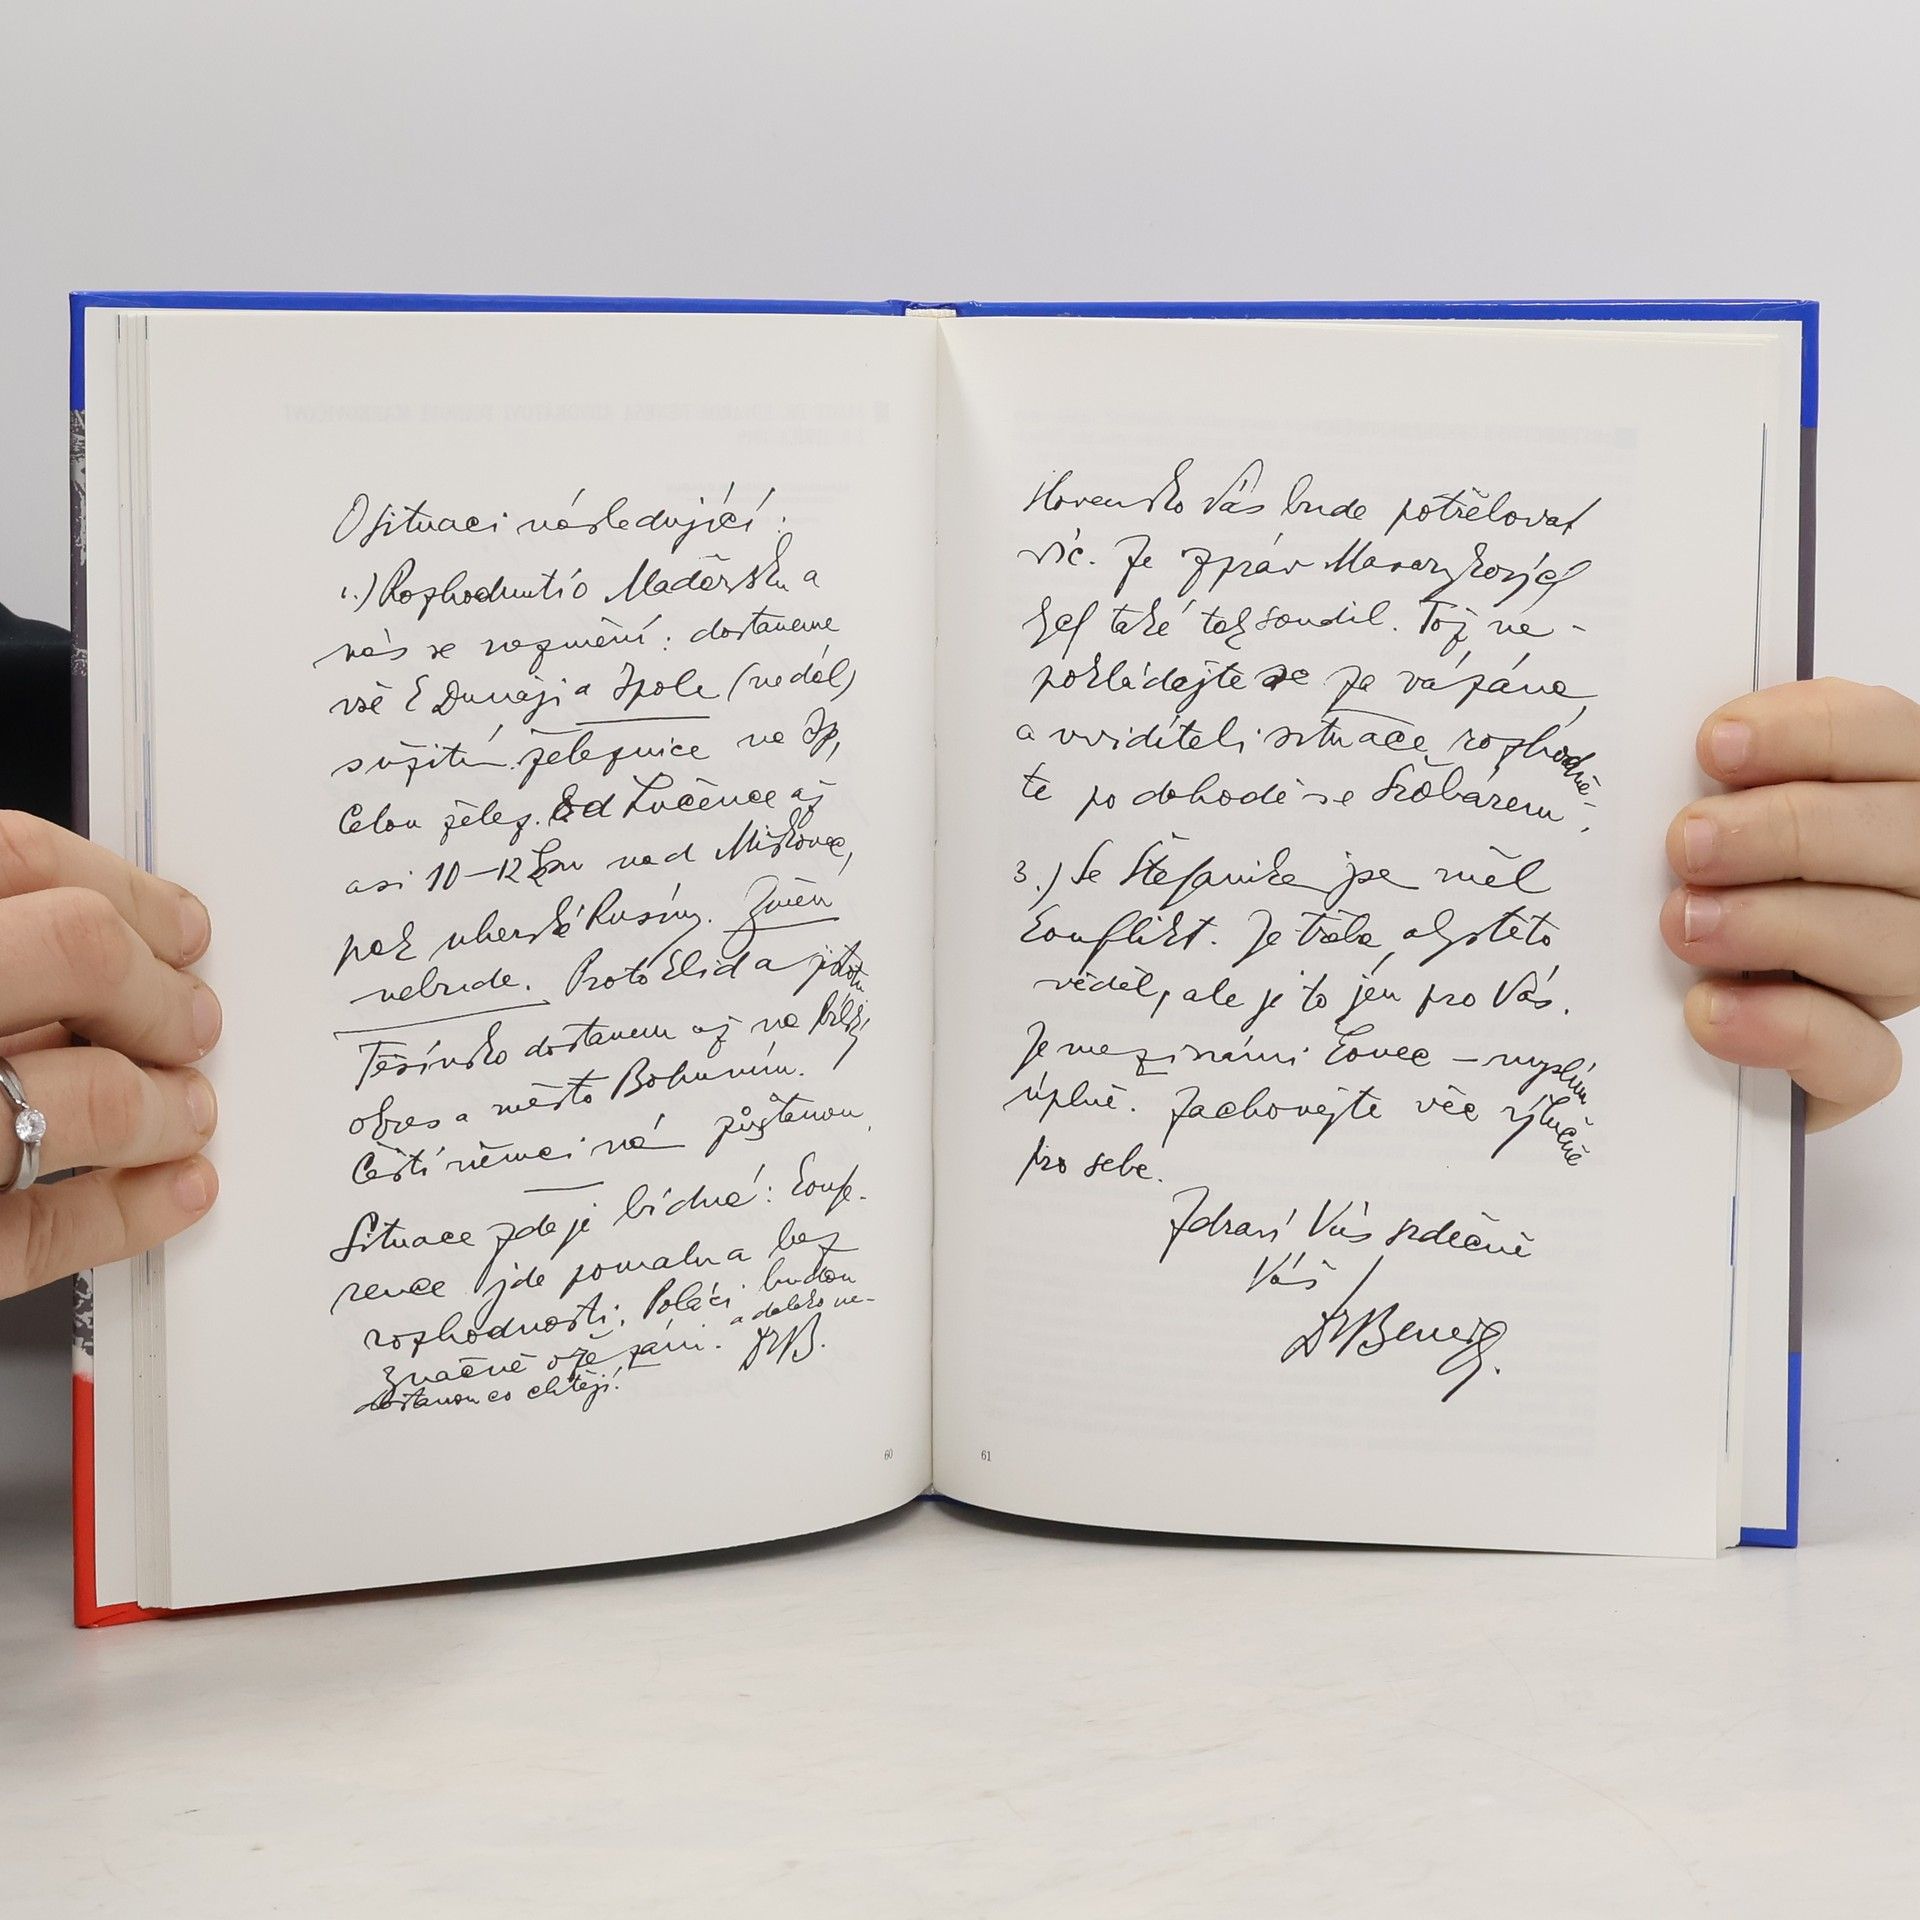 O situaci následující:
1.) Rozhodnutí o Maďarsku a
nás se nezmění: dostaneme
vše k Dunaji a Ipole (nedál)
s užitím železnice na Ip,
celou želez. Od Lučence až
asi 10–12 km nad Miškovec,
pak uherské Rusíny. Změn
nebude. Proto klid a jistotu
Těšínsko dostanem až na Bílský
okres a město Bohumín.
Čeští němci ná zůstanou
Situace zde je bídná: konfe-
rence jde pomalu a bez
rozhodnosti. Poláci budou
značně ořezáni. a daleko ne-
dostanou co chtějí! DrB.
60
Slovensko Vás bude potřebovat
víc. Ze zpráv Masarykových
jsem také tak soudil. Tož ne-
pokládejte se za vázána,
a uvidíte-li situace, rozhodně-
te po dohodě se Šrobárem.
3.) Se Štefanikem jsem měl
konflikt. Je třeba, abyste to
věděl, ale je to jen pro Vás.
Je mezi námi konec – myslím
úplně. Zachovejte věc výlučně
pro sebe.
Zdraví Vás srdečně
Váš
DrBeneš.
61